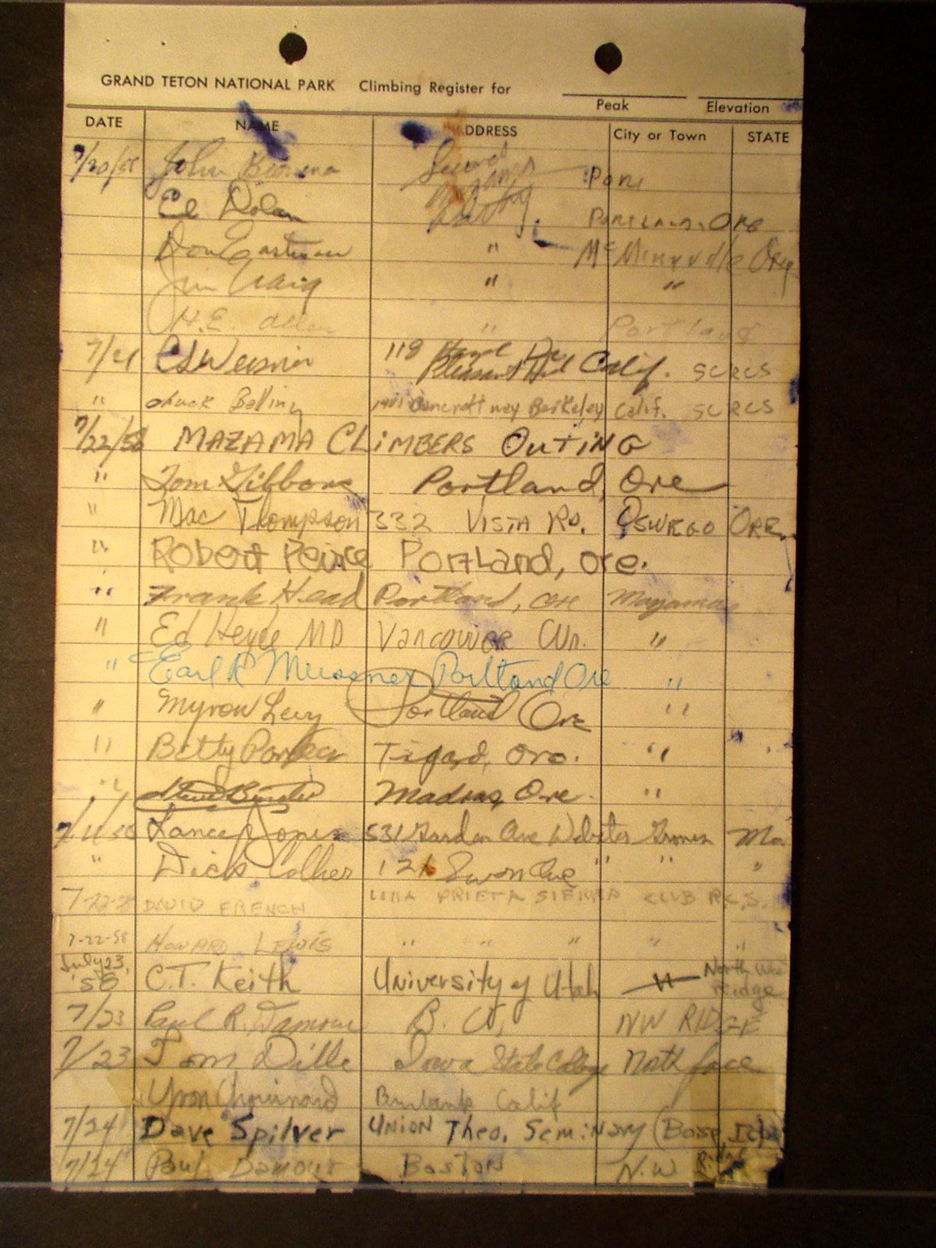 GRAND TETON NATIONAL PARK Climbing Register for
Peak Elevation
DATE NAME ADDRESS City or Town STATE
John
Ed Dolan PORTLAND, Ore
Don Eastman " McMinnville Oreg
Jim Craig " "
H.E. Allen " Portland
7/21 119 Pleasant Hill Calif. SCRCS
" Chuck Bancroft way Berkeley Calif. SCRCS
7/22/58 MAZAMA CLIMBERS OUTING
" Tom Gibbons Portland, Ore
" Mac Thompson 332 VISTA RD. OSWEGO ORE.
" Robert Peirce Portland, ore.
" Frank Head Portland, ore Mazamas
" Ed MD Vancouver Wn. "
" Earl R Portland Ore "
" Myron Levy Portland Ore "
" Betty Parker Tigard, Ore. "
" Madras Ore. "
Lance Jones 531 Garden Ave Webster Groves Mo.
" Dick Collier 121 Swon Ave " " "
7-22-58 DAVID FRENCH LOMA PRIETA SIERRA CLUB R.C.S.
7-22-58 HOWARD LEWIS " " " " "
July 23, '58 C.T. Keith University of Utah North West Ridge
7/23 Paul R. Damour NW RIDGE
7/23 Tom Iowa State College North face
Yvon Chouinard Burbank Calif
7/24 Dave Spilver UNION Theo. Seminary
7/24 Paul Damour Boston N.W Ridge